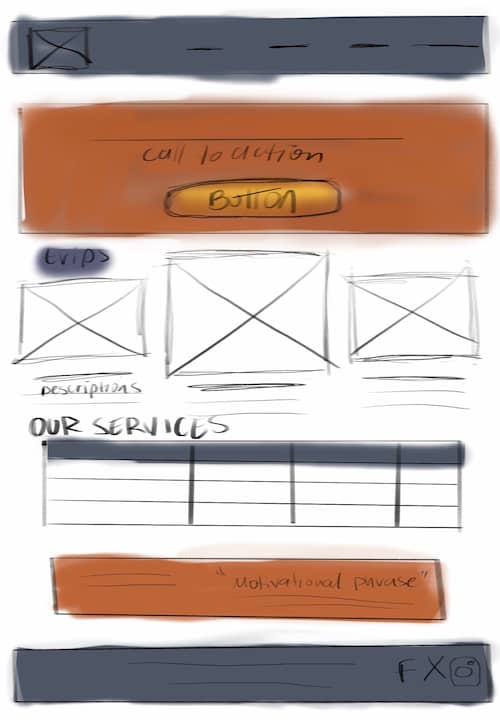 call to action
Button
Descriptions
OUR SERVICES
"Motivational phrase"
F X